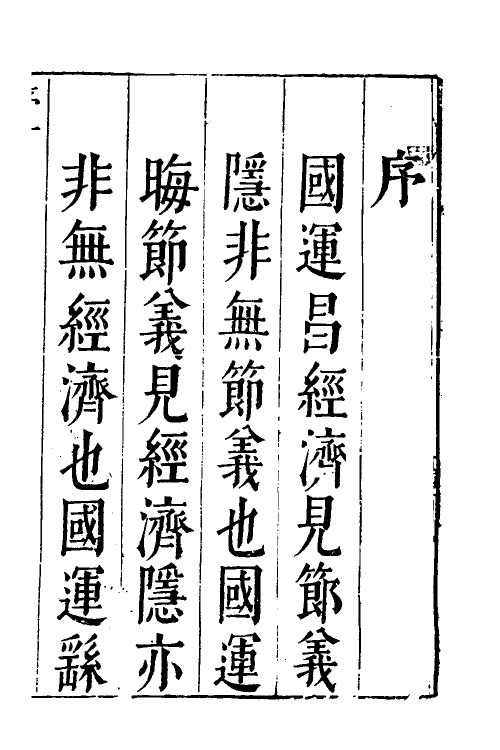 序
國運昌經濟見節義
隱非無節義也國運
晦節義見經濟隱亦
非無經濟也國運繇
序一